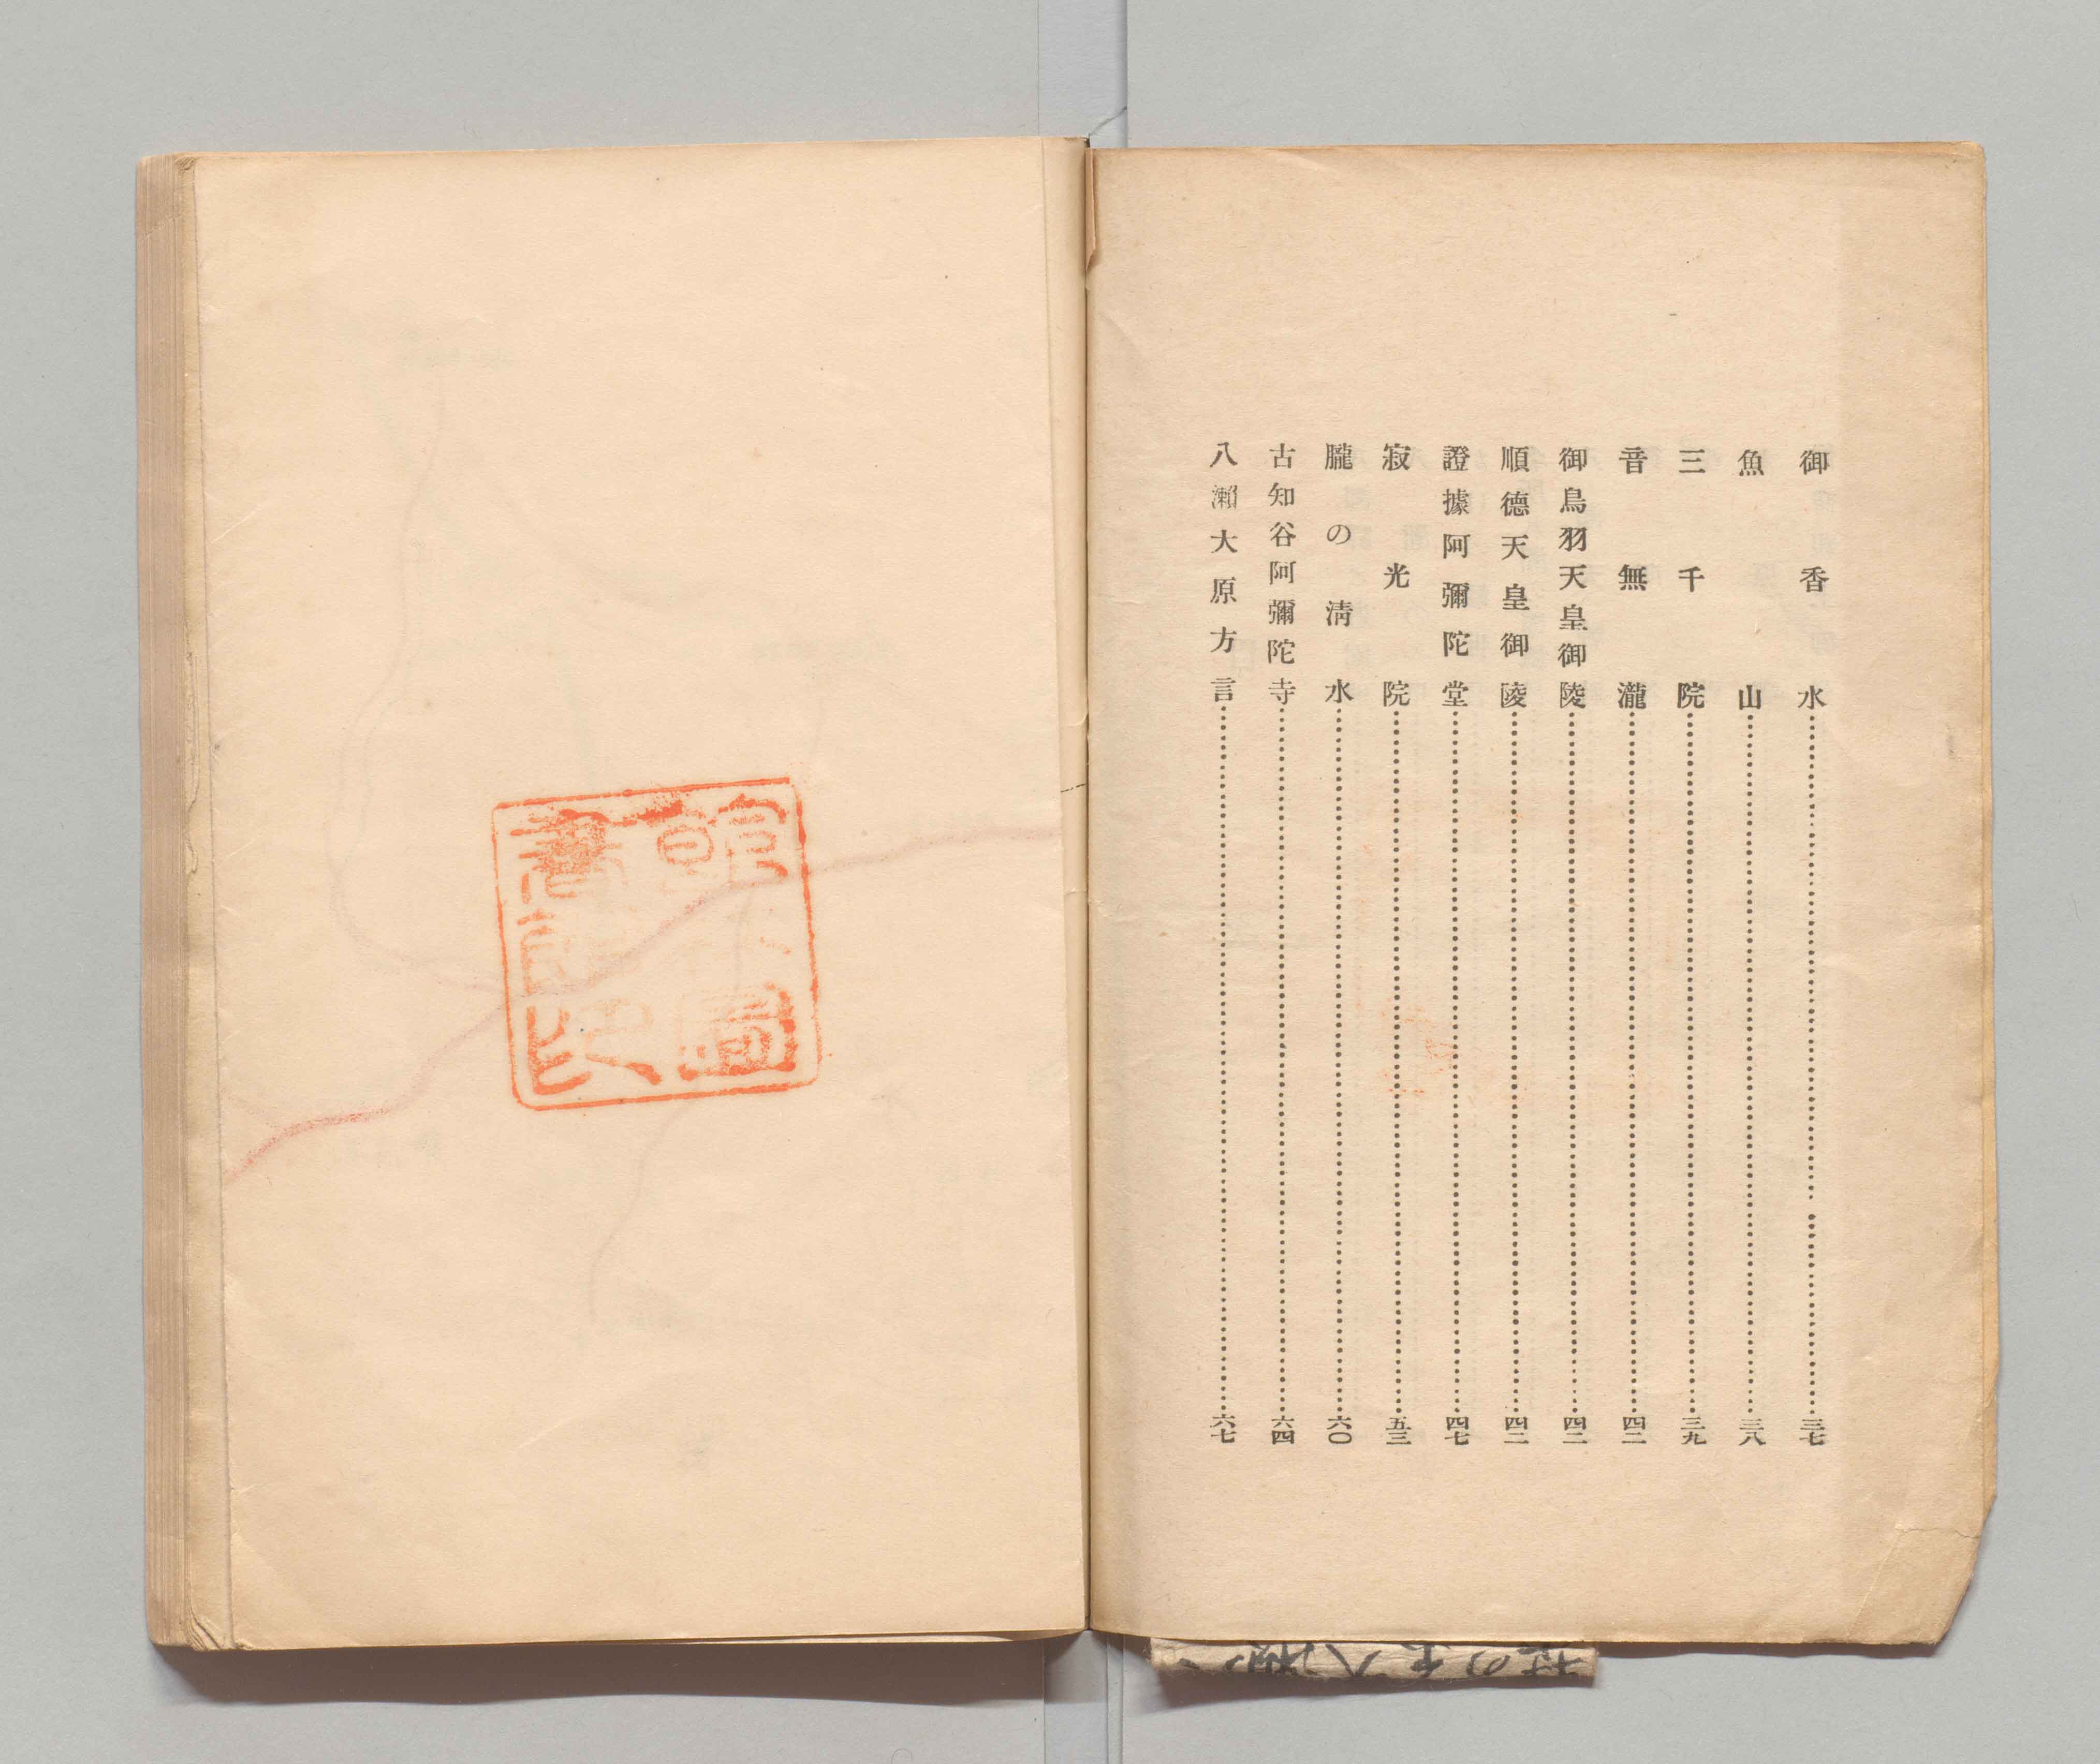 御香水……三七
魚山……三八
三千院……三九
音無瀧……四二
御鳥羽天皇御陵……四二
順德天皇御陵……四二
證據阿彌陀堂……四七
寂光院……五三
朧の淸水……六〇
古知谷阿彌陀寺……六四
八瀨大原方言……六七